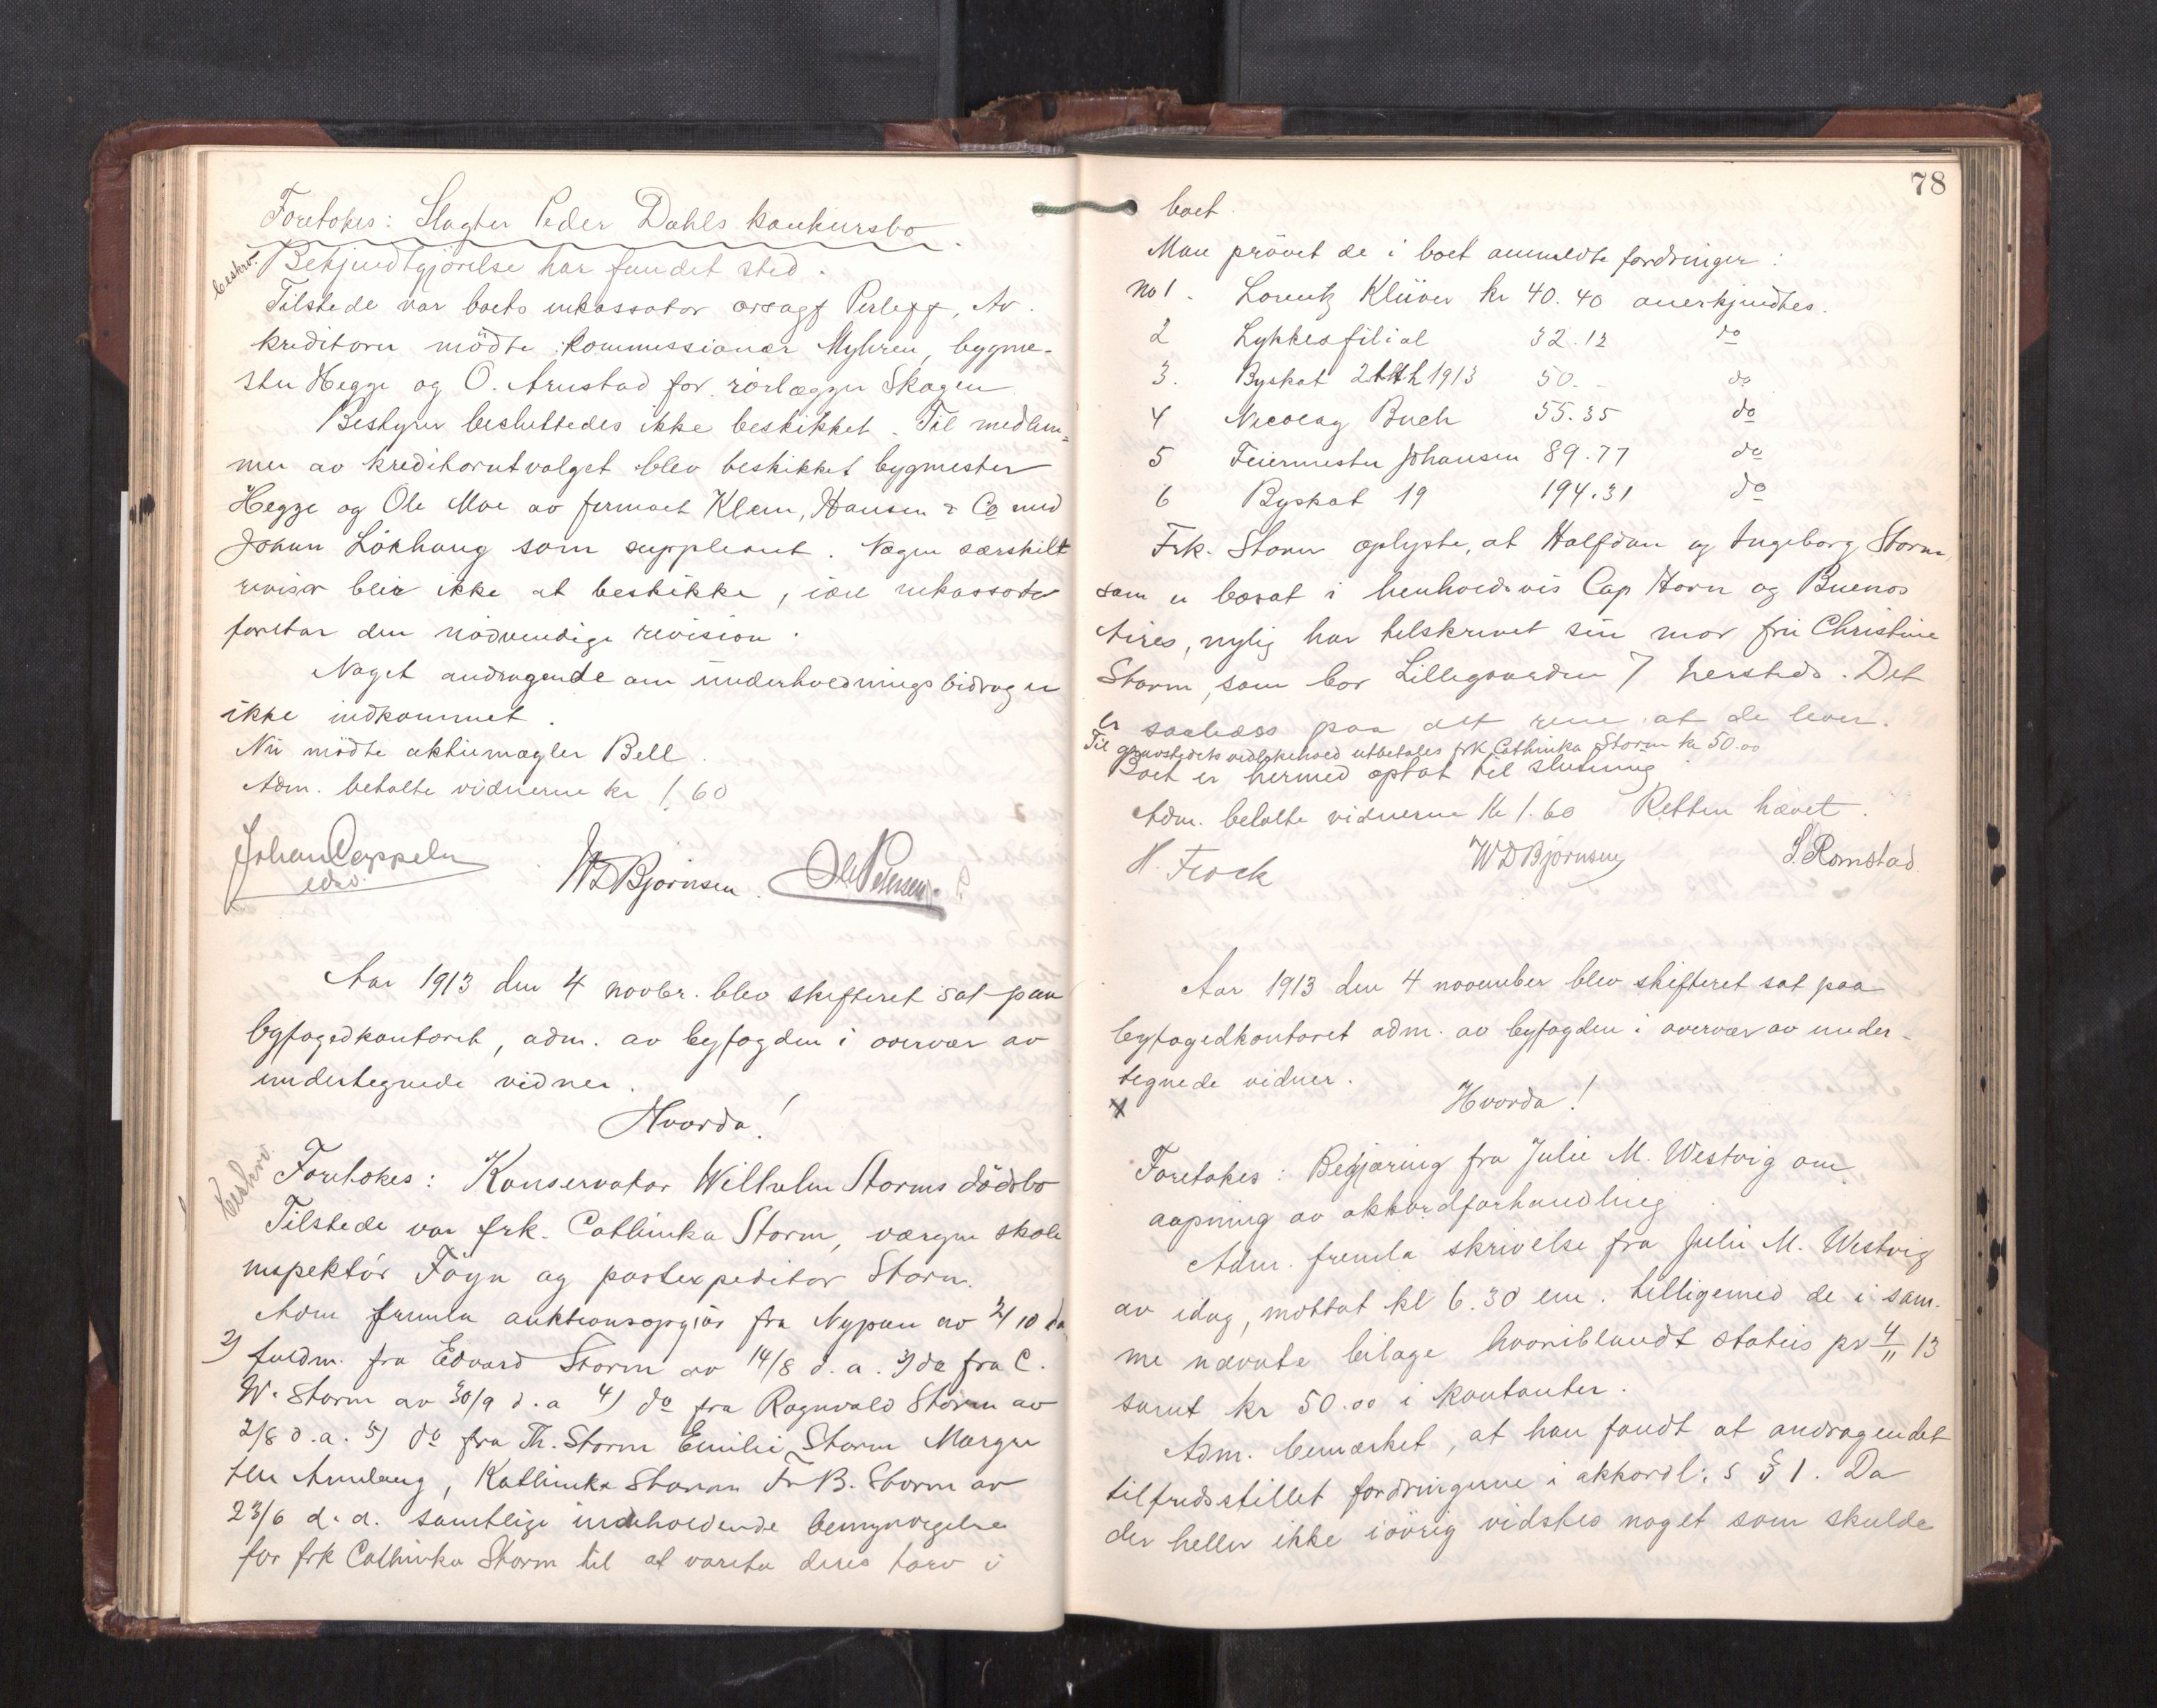 Foretokes: Slagter Peder Dahls konkursbo.
beskrv.
Bekjendtgjörelse har fundet sted.
Tilstede var boets inkassator orsagf Perleff, Av
kreditorer mödte kommissionær Myhren, bygme-
ster Hegge og O. Arnstad for rörlægger Skogen
Bestyrer besluttedes ikke beskikket. Til medlem=
mer av kreditorutvalget blev beskikket bygmester
Hegge og Ole Moe av firmaet Klem, Hansen & Co med
Johan Lökhaug som suppleant. Nogen særskilt
revisor blir ikke at beskikke, idet inkassator
foretar den nödvendige revision.
Noget andragende om underholdningsbidrag er
ikke indkommet.
Nu mödte aktiemægler Bell.
Adm. betalte vidnerne kr 1.60
Johan Cappelen
edsv.
WDBjørnsen.
Ole Petersen.
Aar 1913 den 4 novbr. blev skifteret sat paa
byfogedkontoret, adm. av byfogden i overvær av
undertegnede vidner.
Hvorda!
beskrv.
Foretokes: Konservator Wilhelm Storms dödsbo
Tilstede var frk. Cathinka Storm, værgen skole
inspektör Föyn og postexpeditör Storm.
Adm fremla auktionsopgjör fra Nypan av 2/10 da
2) fuldm. fra Edvard Storm av 14/8 d.a. 3) do fra C.
W. Storm av 30/9 d.a 4) do fra Ragnvald Storm av
2/8 d.a. 5) do fra Th. Storm Emilie Storm Margre
the Amdang, Kathinka Storm Fr B. Storm av
23/6 d.a. samtlige indeholdende bemyndigelse
for frk Cathinka Storm til at vareta deres tarv i
78
boet.
Man prövet de i boet anmeldte fordringer:
No 1. Lorentz Klüver kr 40.40 anerkjendtes.
2 Lykkesfilial 32.12 do
3. Byskat 2 1913 50.- do
4 Nicolay Buch 55.35 do
5 Feiermester Johansen 89.77 do
6 Byskat 19 194.31 do
Frk. Storm oplyste, at Halfdan og Ingeborg Storm,
som er bosat i henholdsvis Cap Horn og Buenos
Aires, nylig har tilskrevet sin mor fru Christine
Storm, som bor Lillegaarden 7 hersteds. Det
er saaledes paa det rene at de lever.
Til gravstedets vedlikehold utbetales frk Cathinka Storm kr 50.00
Boet er hermed optat til slutning
Adm. betalte vidnerne kr 1.60 Retten hævet.
H. Frock
WDBjørnsen
S. Romstad.
Aar 1913 den 4 november blev skifteret sat paa
byfogedkontoret adm. av byfogden i overvær av under-
tegnede vidner.
x
Hvorda!
Foretokes: Begjæring fra Julie M. Westvig om
aapning av akkordforhandling
Adm. fremla skrivelse fra Julie M. Westvig
av idag, mottat kl 6.30 em. tilligemed de i sam-
me nævnte bilage hvoriblandt status pr 4/11 13
samt kr 50.00 i kontanter.
Adm. bemærket, at han fandt at andragendet
tilfredsstillet fordringerne i akkordl.s § 1. Da
der heller ikke iövrig vidstes noget som skulde